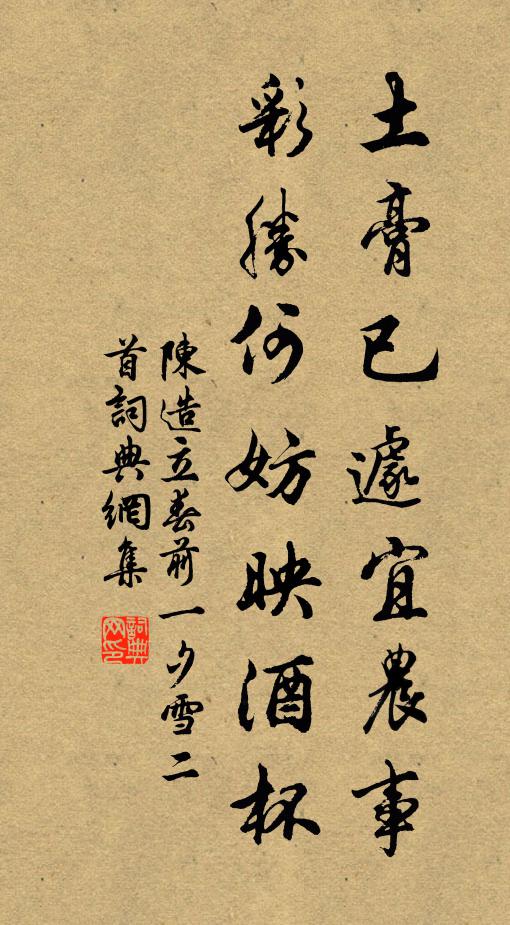 土膏已遽宜農事
彩勝何妨映酒杯
陳造立春前一夕雪二
首詞典網集
詞典网印